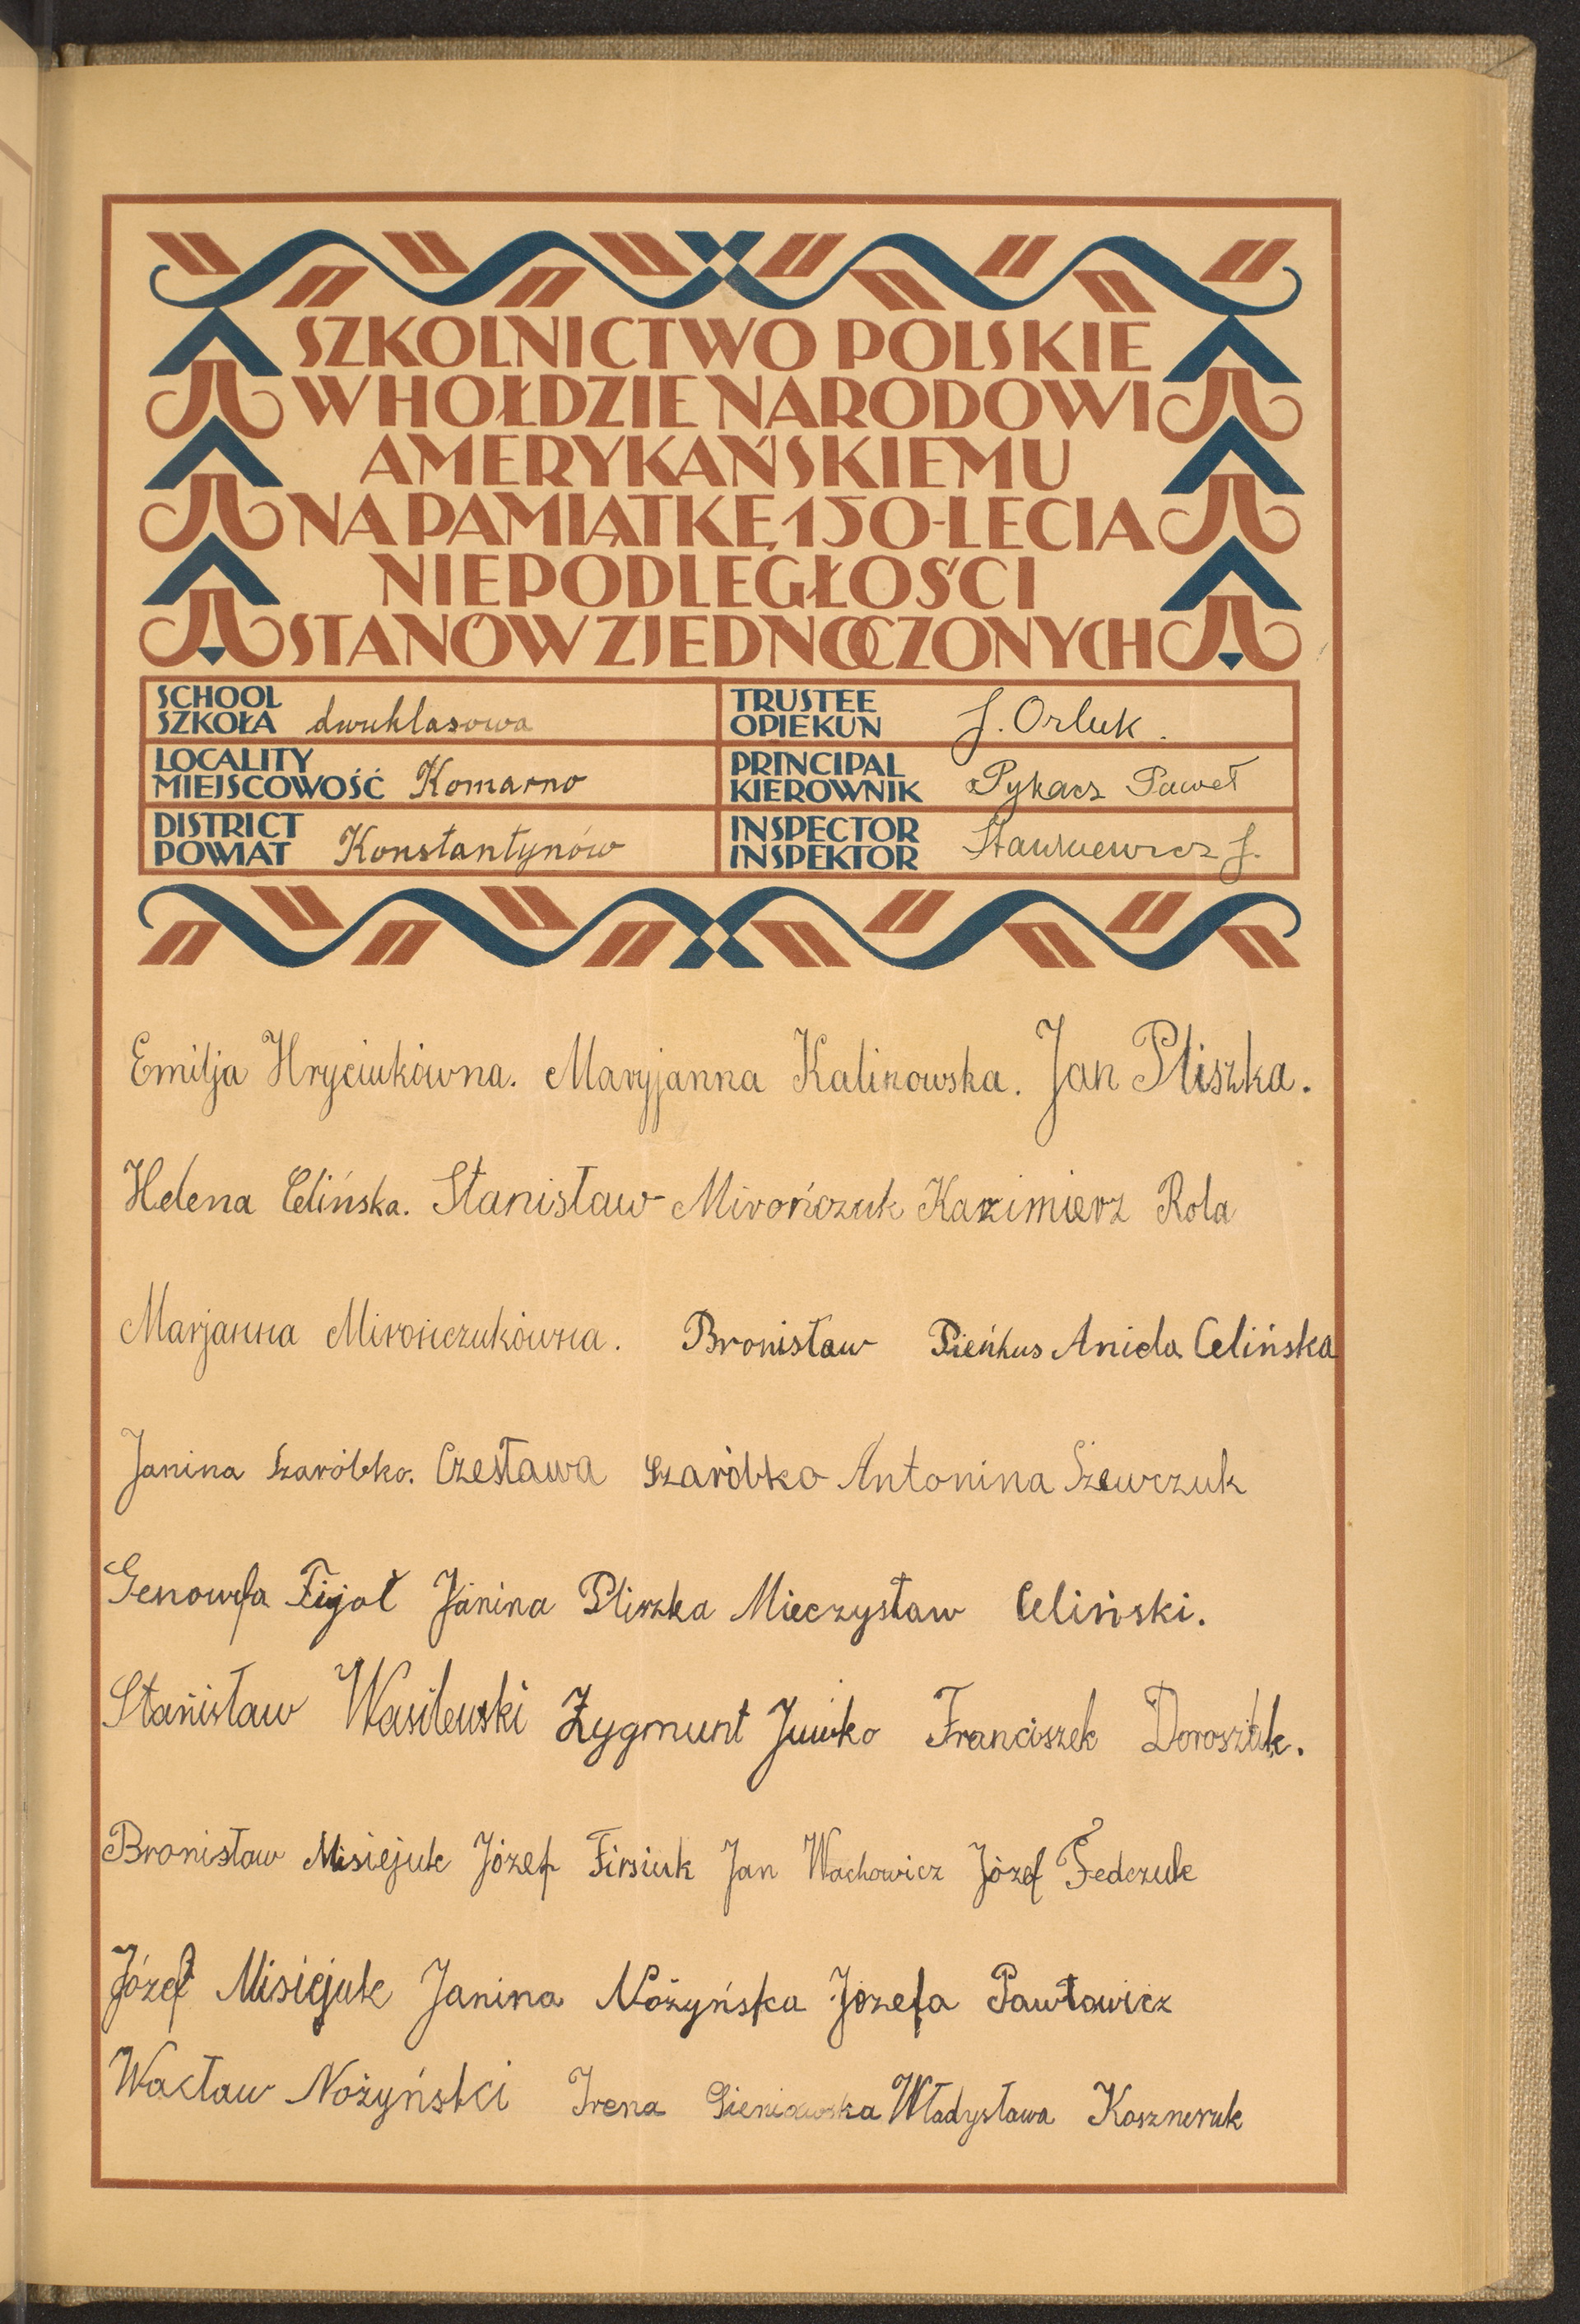 SZKOLNICTWO POLSKIE
W HOŁDZIE NARODOWI
AMERYKAŃSKIEMU
NA PAMIĄTKĘ 150-LECIA
NIEPODLEGŁOŚCI
STANÓW ZJEDNOCZONYCH
SCHOOL
SZKOŁA dwuklasowa
TRUSTEE
OPIEKUN J. Orluk.
LOCALITY
MIEJSCOWOŚĆ Komarno
PRINCIPAL
KIEROWNIK Pykacz Paweł
DISTRICT
POWIAT Konstantynów
INSPECTOR
INSPEKTOR J.
Emilja Hryciukówna. Maryjanna Kalinowska. Jan Pliszka.
Helena Celińska. Stanisław Mirończuk Kazimierz Rola
Marjanna Mirończukówna. Bronisław Pieńkus Aniela Celińska
Janina Szaróbko. Czesława Szaróbko Antonina Szewczuk
Genowefa Figoł Janina Pliszka Mieczysław Celiński.
Stanisław Wasilewski Zygmunt Juwko Franciszek
Bronisław Misiejuk Józef Firsiuk Jan Wachowicz Józef Fedczuk
Józef Misiejuk Janina Nożyńska Józefa Pawłowicz
Wacław Nożyński Irena Władysława